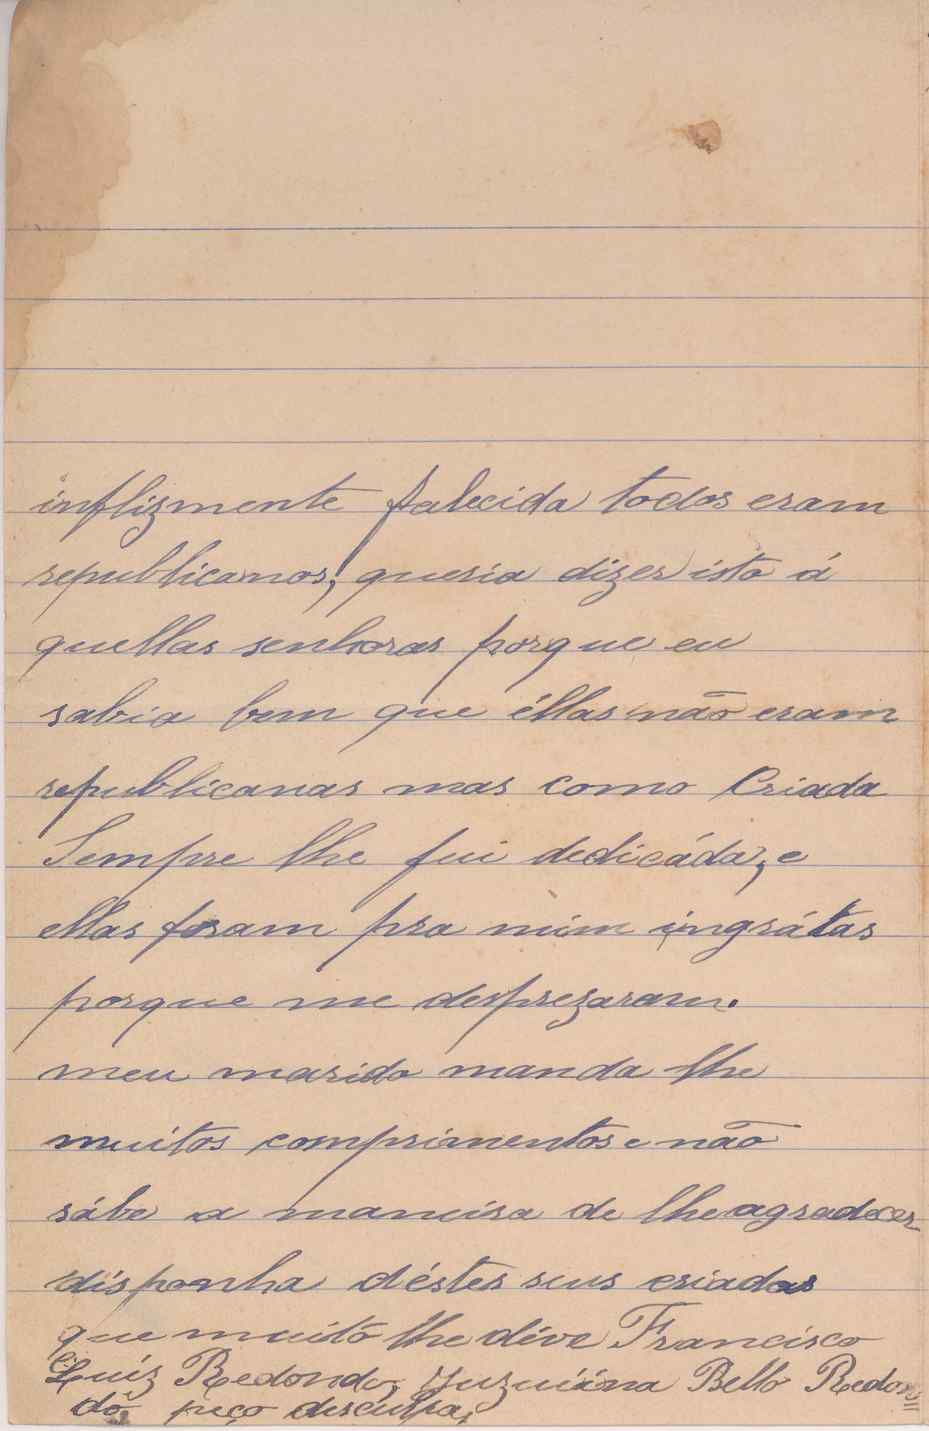 inflizmente falecida todos eram
republicanos, queria dizer isto á
quellas senhoras porque eu
sabia bem que éllas não eram
republicanas mas como Criada
Sempre lhe fui dedicáda, e
ellas foram pra mim ingrátas
porque me desprezaram.
meu marido manda lhe
muitos comprimentos e não
sábe a maneira de lhe agradecer
disponha déstes seus criados
que muito lhe déve Francisco
Luíz Redondo, Bello Redon=
dô peço desculpa,